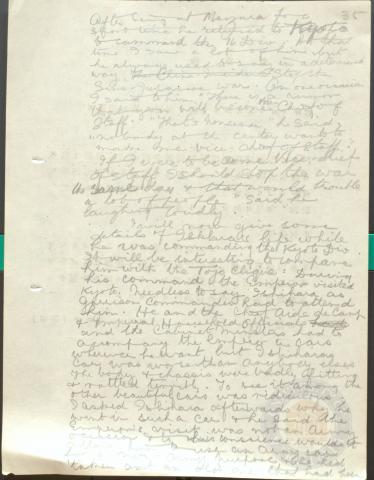 35
After being at Maizuru for a
short time he returned to Kyoto
to command the 16 Div. At that
time I saw a lot of him but
he always used to say in a determined
way "Stop the
Sino-Japanese war." On one occasion
I said to him "There is a rumour
that you will become Vice Chief of
Staff." "That's nonsense" he said,
"nobody at the center wants to
make me vice-chief of staff.
If I were to become Vice-chief
of staff I should stop the war
the same day & that would trouble
a lot of people" said he
laughing loudly.
I will now give some
details of Ishihara's life while
he was commanding the Kyoto Div.
It will be interesting to compare
him with the Tojo clique: During
his command the Emperor visited
Kyoto. Needless to say Ishihara as
Garrison Commander had to attend
him. He and the Chief Aide de Camp
& Imperial Household Officials
and the Cabinet Ministers had to
accompany the Emperor in cars
wherever he went, but Ishihara's
car was worse than anyone else's
the body & chassis were badly fitting
& rattled terribly. To see it among the
other beautiful cars was ridiculous.
I asked Ishihara afterward why he
went in such a car & he said "the
Emperor's visit was not an Army
& his conscience wouldn't
use an Army car
purpose. He had
taken that had been